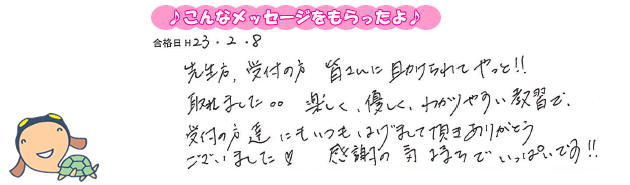 ♪こんなメッセージをもらったよ♪
合格日 H23.2.8
先生方、受付の方 皆さんに助けられてやっと!!
取れました。。 楽しく、優しく、わかりやすい教習で、
受付の方達にもいつもはげまして頂きありがとう
ございました♡ 感謝の気持ちでいっぱいです!!